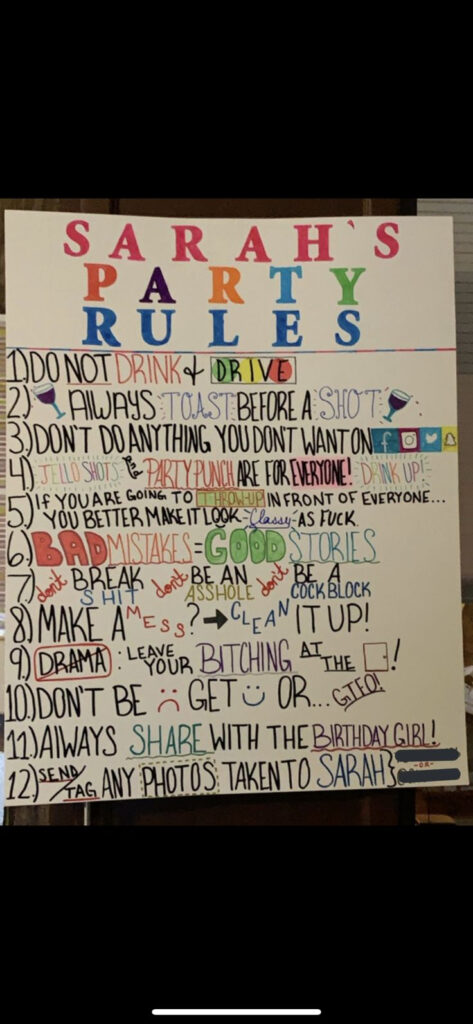 SARAH'S
PARTY
RULES
1) DO NOT DRINK & DRIVE
2) ALWAYS TOAST BEFORE A SHOT
3) DON'T DO ANYTHING YOU DON'T WANT ON
4) JELLO SHOTS and PARTY PUNCH ARE FOR EVERYONE! DRINK UP!
5) IF YOU ARE GOING TO THROW-UP IN FRONT OF EVERYONE...
YOU BETTER MAKE IT LOOK Classy AS FUCK.
6) BAD MISTAKES = GOOD STORIES
7) don't BREAK SHIT don't BE AN ASSHOLE don't BE A COCK BLOCK
8) MAKE A MESS? → CLEAN IT UP!
9) DRAMA: LEAVE YOUR BITCHING AT THE !
10.) DON'T BE ☹ GET ☺ OR... GTFO!
11.) ALWAYS SHARE WITH THE BIRTHDAY GIRL!
12.) SEND/TAG ANY PHOTOS TAKEN TO SARAH} -OR-